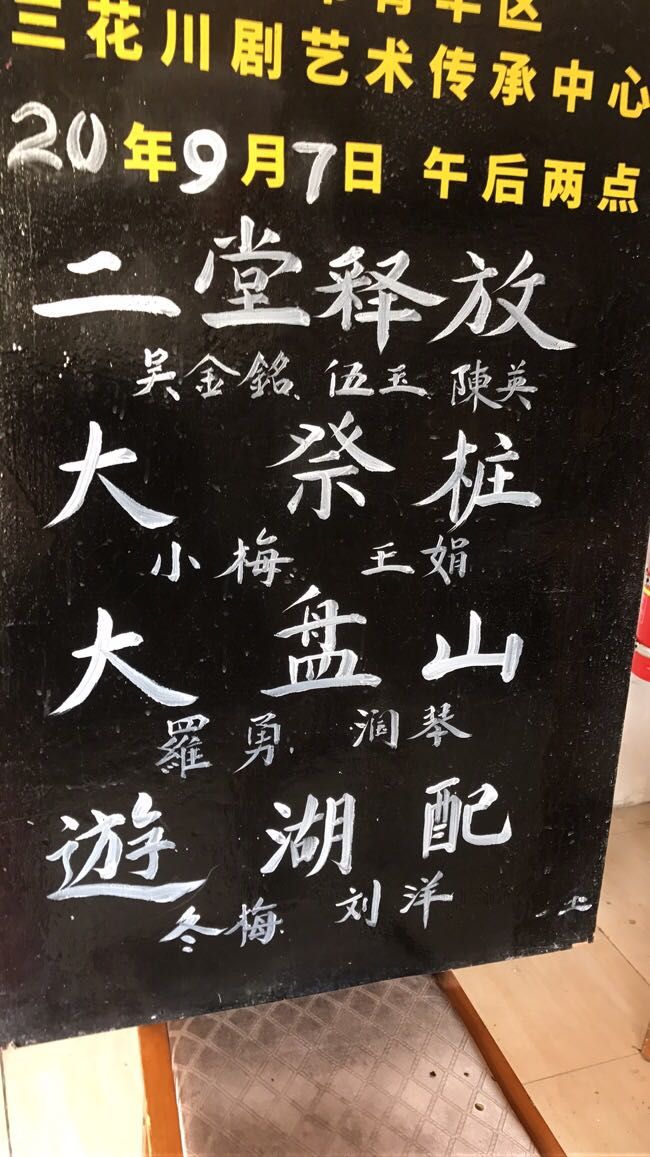 三花川剧艺术传承中心
20年9月7日 午后两点
二堂释放
吴金銘 伍玉 陳英
大祭桩
小梅 王娟
大盘山
羅勇 润琴
遊湖配
冬梅 刘洋